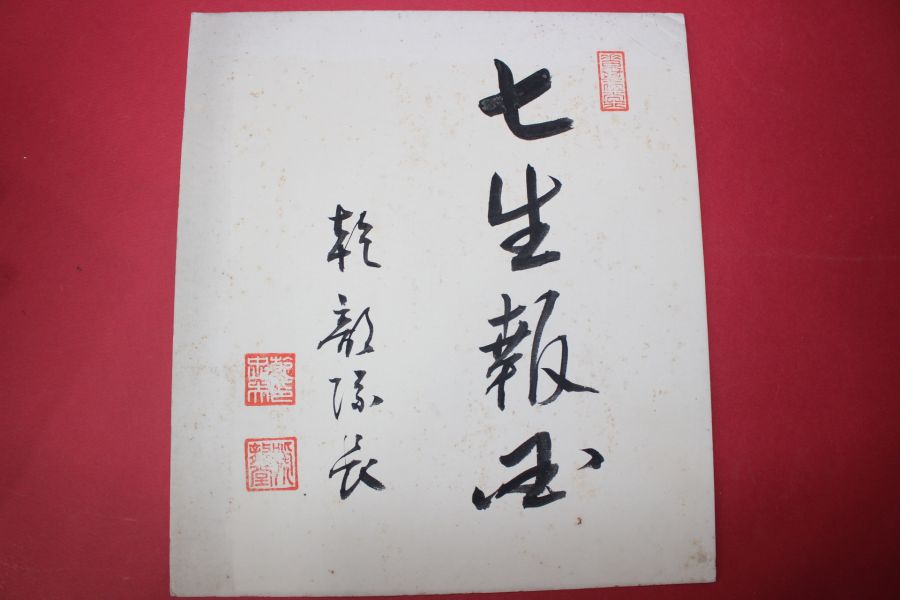 七生報國
乾部隊長